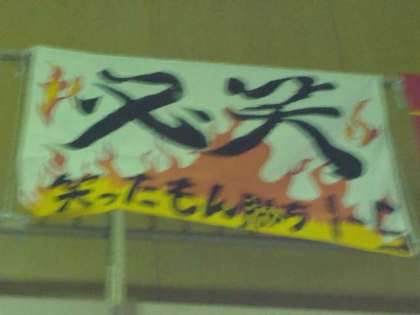 必笑
笑ったもん勝ち！